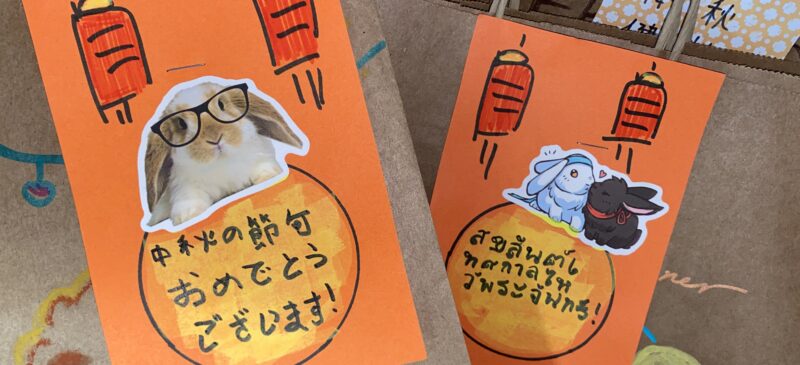 中秋の節句
おめでとう
ございます!
สุขสันต์เ
ทศกาลไห
ว้พระจันทร์!
秋